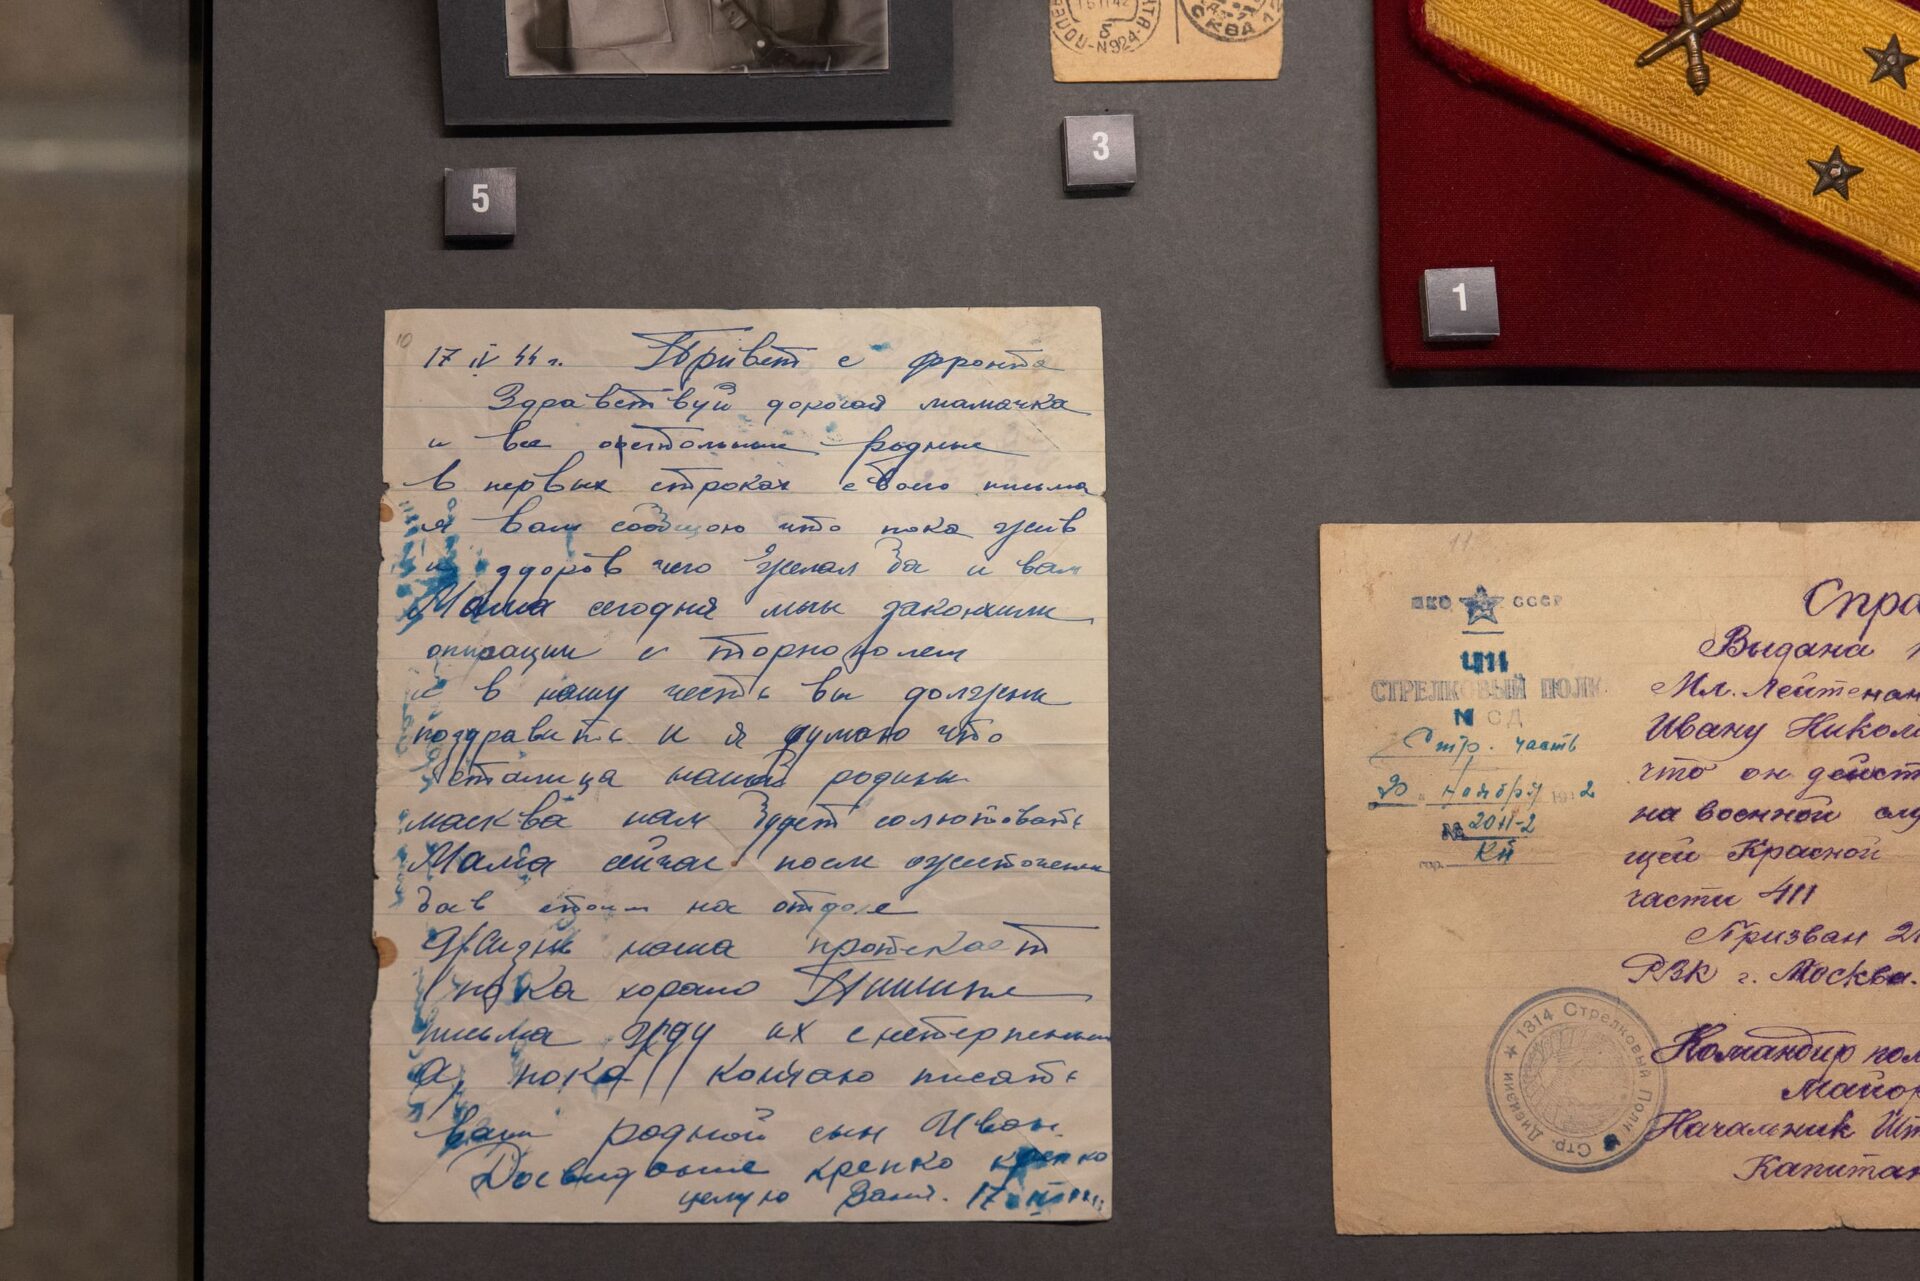 5
3
1
СКВА
N924
10
17 IV 44 г. Привет с фронта
Здравствуй дорогая мамачка
и все остольные родные
В первых строках своего письма
я вам сообщаю что пока жив
и здоров чего желаю и вам
Мама сегодня мы закончили
опирации с торнополем
и в нашу честь вы должны
поздравить и я думаю что
сталица нашей родины
масква нам будет солютовать
Мама сейчас после ожесточеных
боев стоим на отдыхе
Жизнь наша протекает
пока хорошо Пишите
письма жду их с нетерпеньем
А, пока кончаю писать
ваш родной сын Иван.
Досвидание крепко крепко
целую Ваня. 17 IV
11
НКО СССР
1314
СТРЕЛКОВЫЙ ПОЛК
СД
Стр. часть
20 ноября 1942
№ 2011-2
гор.
Спра
Выдана
Мл. Лейтенан
Ивану Никола
что он дейст
на военной слу
щей Красной
части 411
Призван 2
РВК г. Москва.
Командир пол
Майор
Начальник Шт
Капитан
★ 1314 Стрелковый Полк Стр. Дивизии